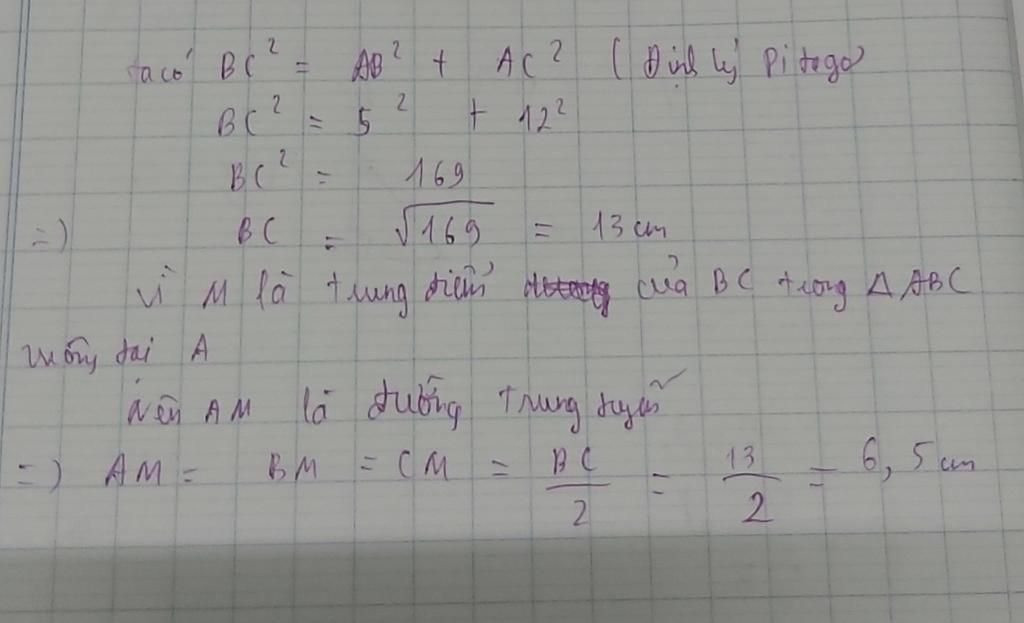 ta có BC² = AB² + AC² ( Định lý Pitago
BC² = 5² + 12²
BC² = 169
=) BC = √169 = 13 cm
Vì M là trung điểm của BC trong Δ ABC
vuông tại A
Nên AM là đường trung tuyến
=) AM = BM = CM = BC/2 = 13/2 = 6,5 cm